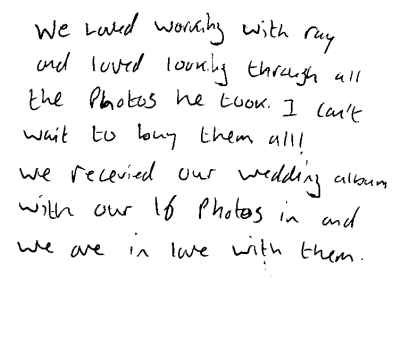 We loved working with ray
and loved looking through all
the Photos he took. I can't
wait to buy them all!
we recevied our wedding album
with our 16 Photos in and
we are in love with them.